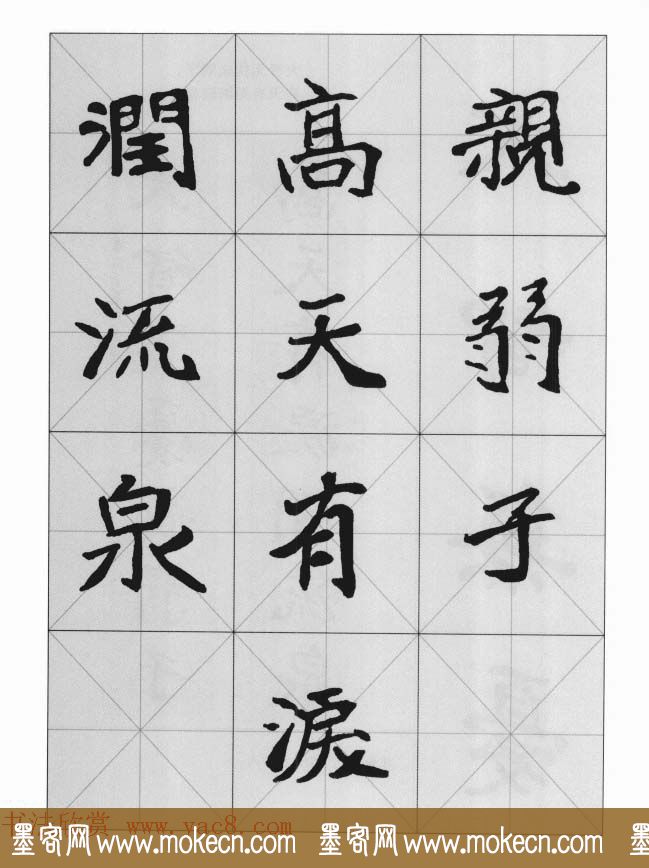 親弱子
高天有淚
潤流泉
书法欣赏 www.yac8.com
墨客网 www.mokecn.com 墨客网 www.mokecn.com 墨客网 www.mokecn.com